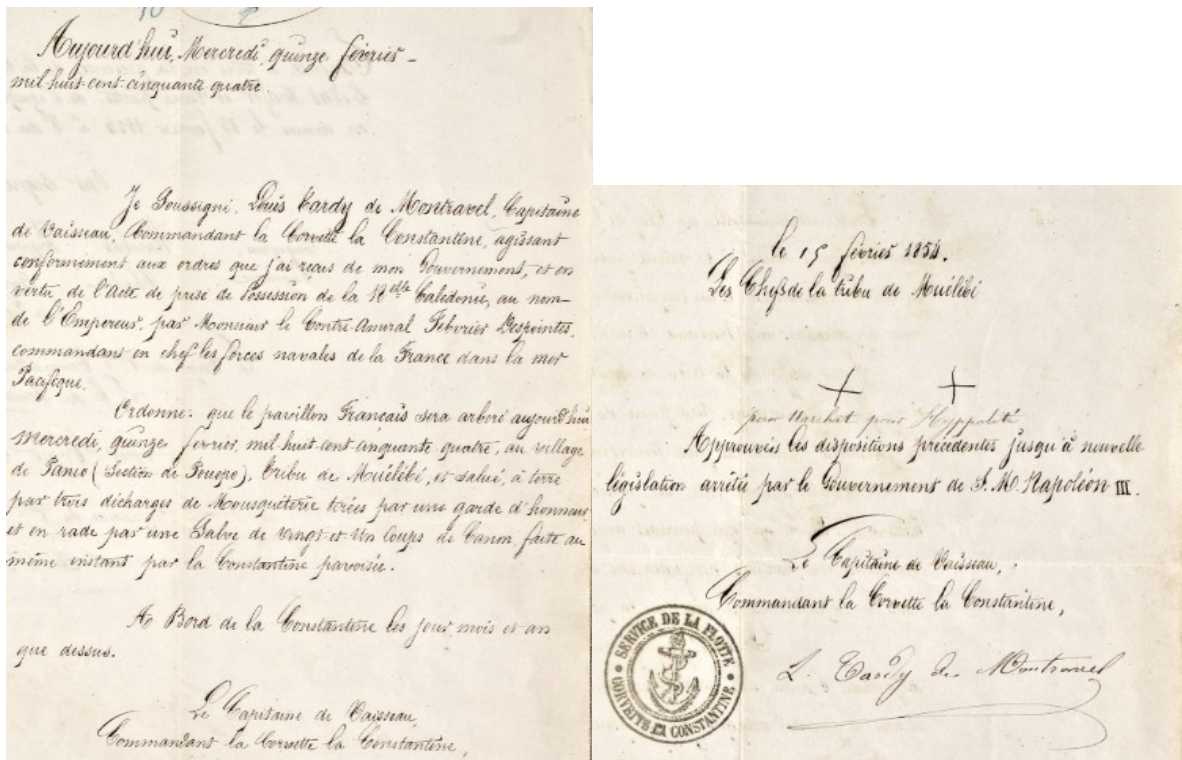 Aujourd'hui, Mercredi, quinze février
mil-huit-cent-cinquante quatre
Je Soussigné, Louis Tardy de Montravel, Capitaine
de Vaisseau, Commandant la Corvette la Constantine, agissant
conformément aux ordres que j'ai reçus de mon Gouvernement, et en
vertu de l'Acte de prise de Possession de la Nelle Calédonie, au nom
de l'Empereur, par Monsieur le Contre-Amiral Febvrier Despointes,
commandant en chef les forces navales de la France dans la mer
Pacifique.
Ordonne: que le pavillon Français sera arboré aujourd'hui
Mercredi, quinze février, mil huit-cent-cinquante quatre, au village
de Panié (Section de Pouepo), Tribu de Muélébé, et salué, à terre
par trois décharges de Mousquéterie tirées par une garde d'honneur
et en rade par une Salve de vingt-et-Un Coups de Canon faite au
même instant par la Constantine pavoisée.
A Bord de la Constantine les jour, mois et an
que dessus.
Le Capitaine de Vaisseau,
Commandant la Corvette la Constantine,
le 15 février 1854.
Les Chefs de la tribu de Muélébé
pour pour Hyppolite
Approuvés les dispositions précédentes jusqu'à nouvelle
législation arrêtée par le Gouvernement de S. M. Napoléon III.
Le Capitaine de Vaisseau,
Commandant la Corvette la Constantine,
L. Tardy de Montravel
SERVICE DE LA FLOTTE
CORVETTE LA CONSTANTINE